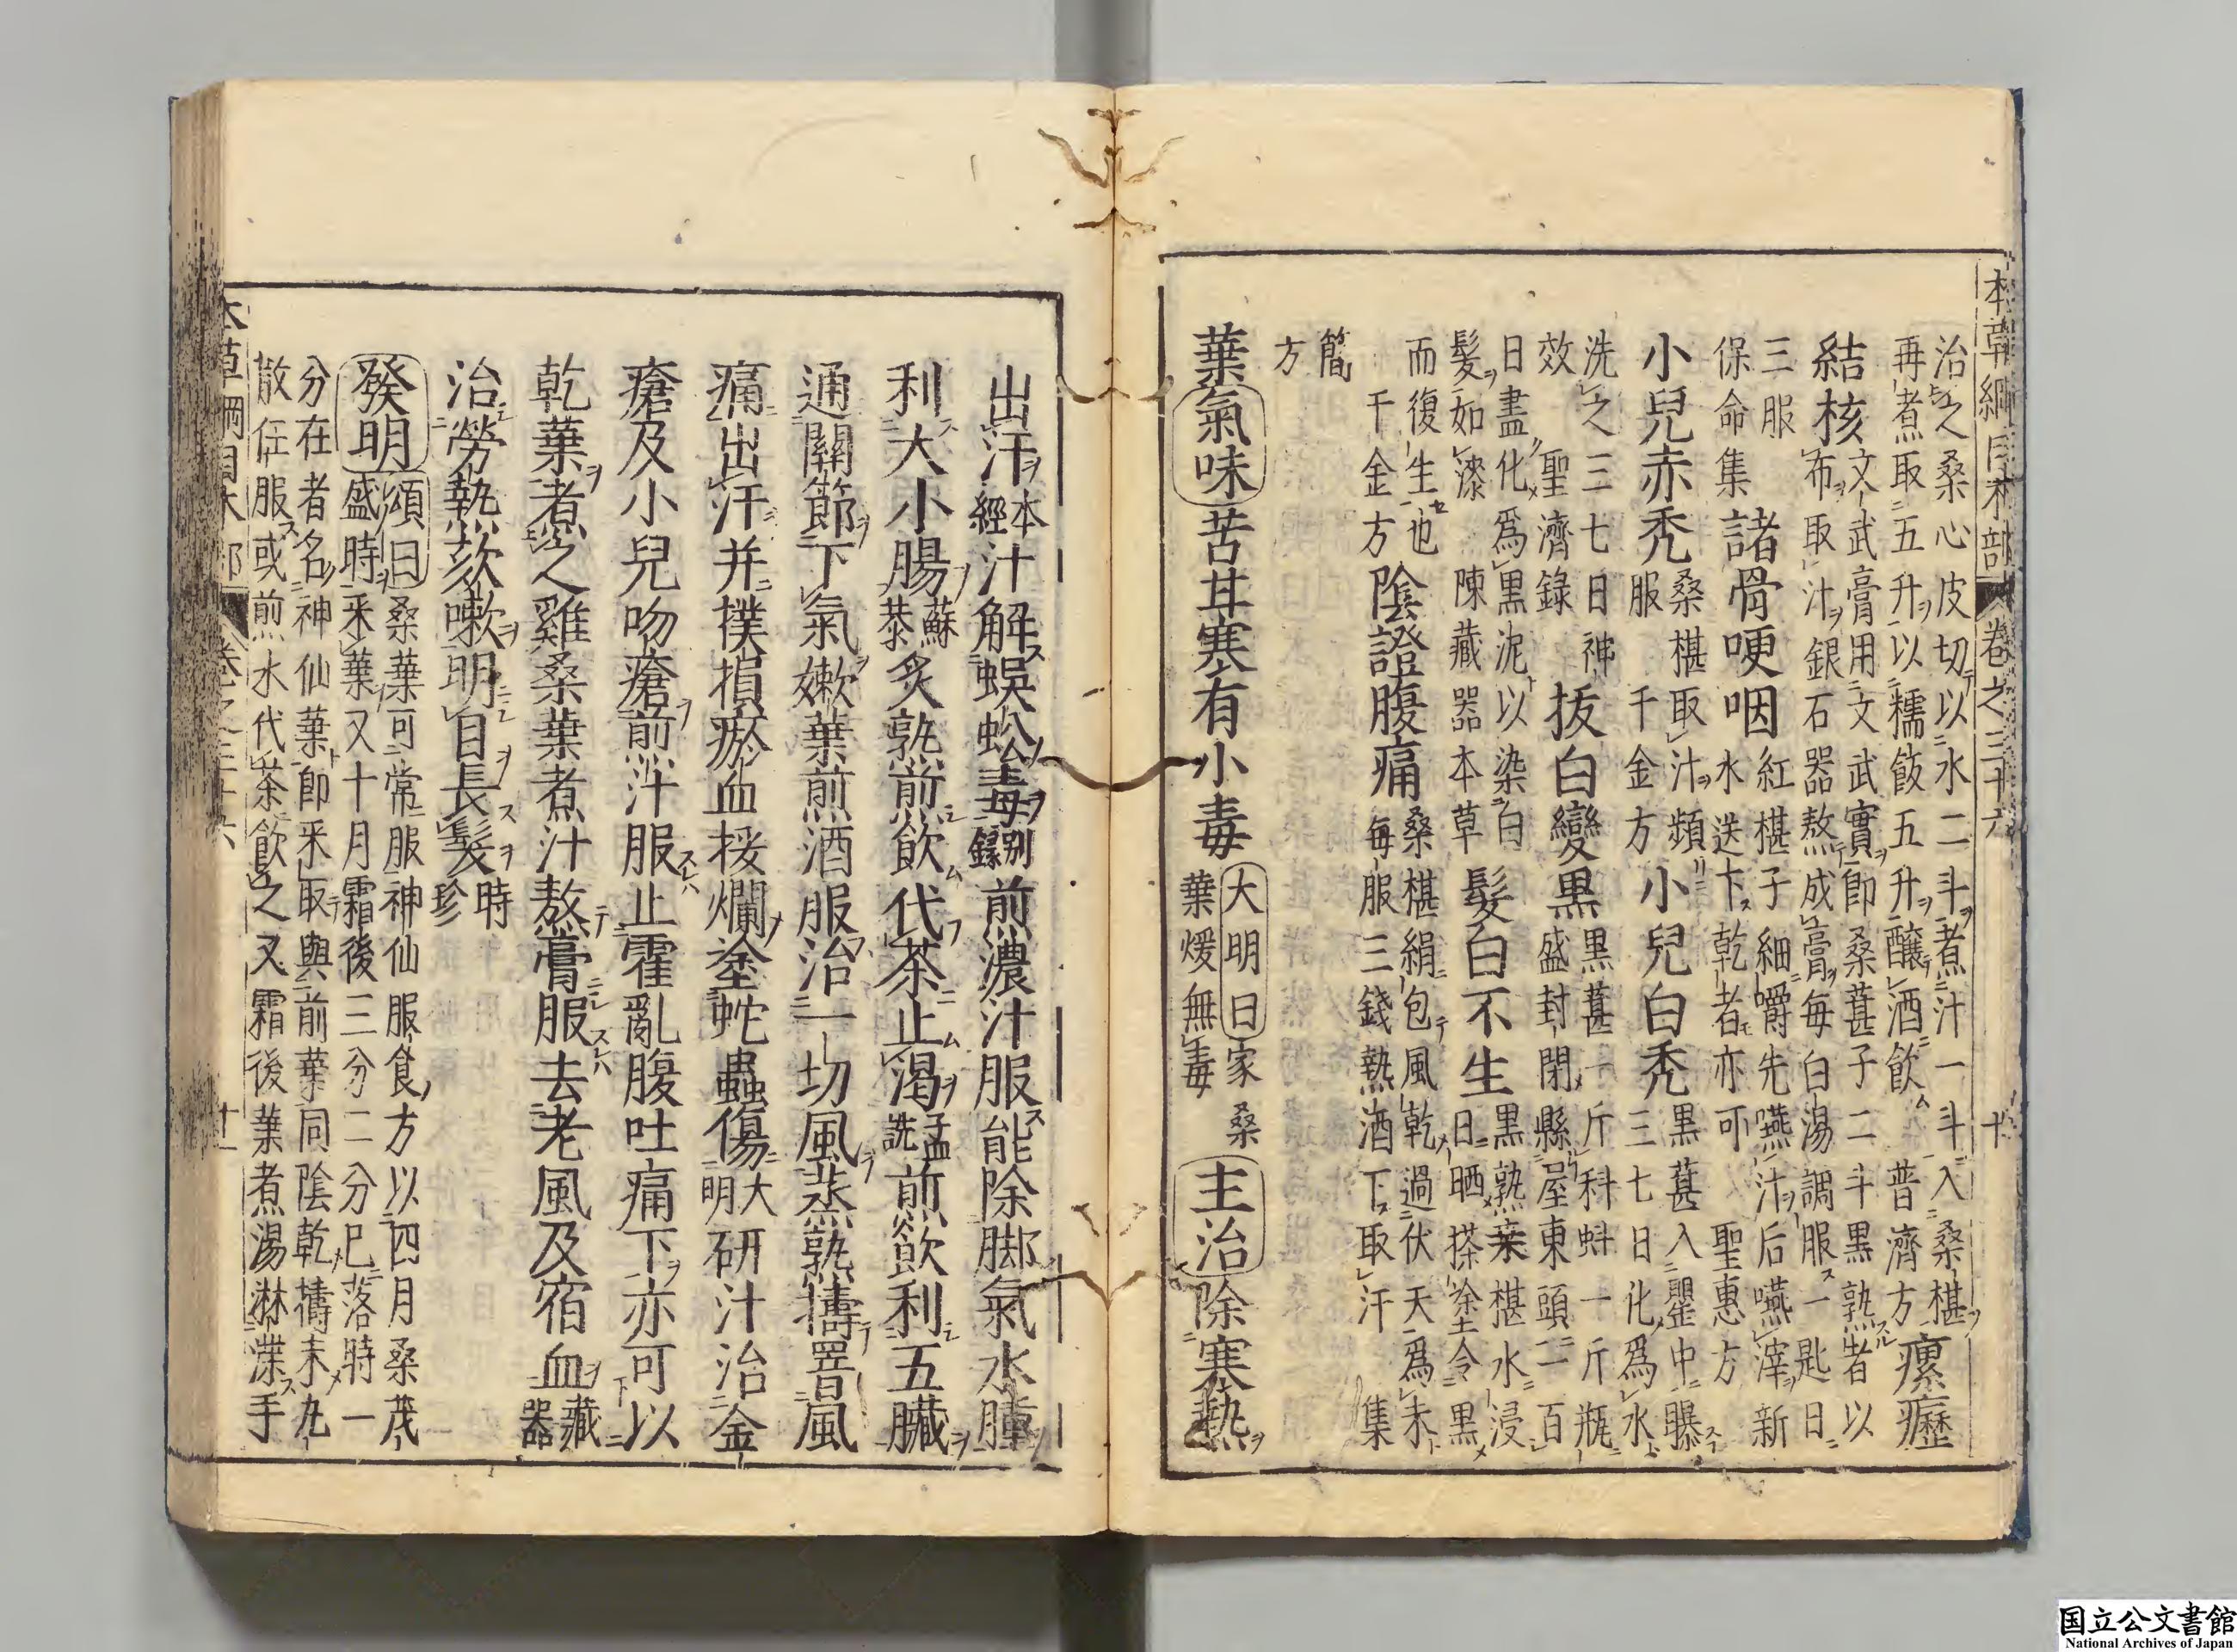 本草綱目木部 卷之三十六 十
治之桑心皮切以水二斗煮汁一斗入桑椹
再煮取五升以糯飯五升釀酒飲 普濟方 瘰癧
結核 文武膏用文武實即桑葚子二斗黑熟者以
布取汁銀石器熬成膏每白湯調服一匙日
三服
保命集 諸骨哽咽 紅椹子細嚼先嚥汁后嚥滓新
水送下乾者亦可 聖惠方
小兒赤禿 桑椹取汁頻
服 千金方 小兒白禿 黑葚入罌中曝
三七日化爲水
洗之三七日神
效 聖濟錄 拔白變黑 黑葚一斤科蚪一斤瓶
盛封閉縣屋東頭一百
日盡化爲黑泥以染白
髮如漆 陳藏器本草 髮白不生 黑熟桒椹水浸
日晒搽塗令黑
而復生也
千金方 陰證腹痛 桑椹絹包風乾過伏天爲末
每服三錢熱酒下取汗 集
簡
方
葉 氣味 苦甘寒有小毒 大明曰家桑
葉煖無毒 主治 除寒熱
出汗 本經 汁解蜈蚣毒 別錄 煎濃汁服能除脚氣水腫
利大小腸 蘇恭 炙熟煎飲代茶止渴 孟詵 煎飲利五臟
通關節下氣嫩葉煎酒服治一切風蒸熟擣罯風
痛出汗并撲損瘀血挼爛塗蛇蟲傷 大明 研汁治金
瘡及小兒吻瘡煎汁服止霍亂腹吐痛下亦可以
乾葉煮之雞桑葉煮汁熬膏服去老風及宿血 藏器
治勞熱欬嗽明目長髮 時珍
發明 頌曰 桑葉可常服神仙服食方以四月桑茂
盛時釆葉又十月霜後三分二分已落時一
分在者名神仙葉即釆取與前葉同陰乾擣末丸
散任服或煎水代茶飲之又霜後葉煮湯淋渫手
本草綱目木部 卷之三十六 十一
国立公文書館
National Archives of Japan